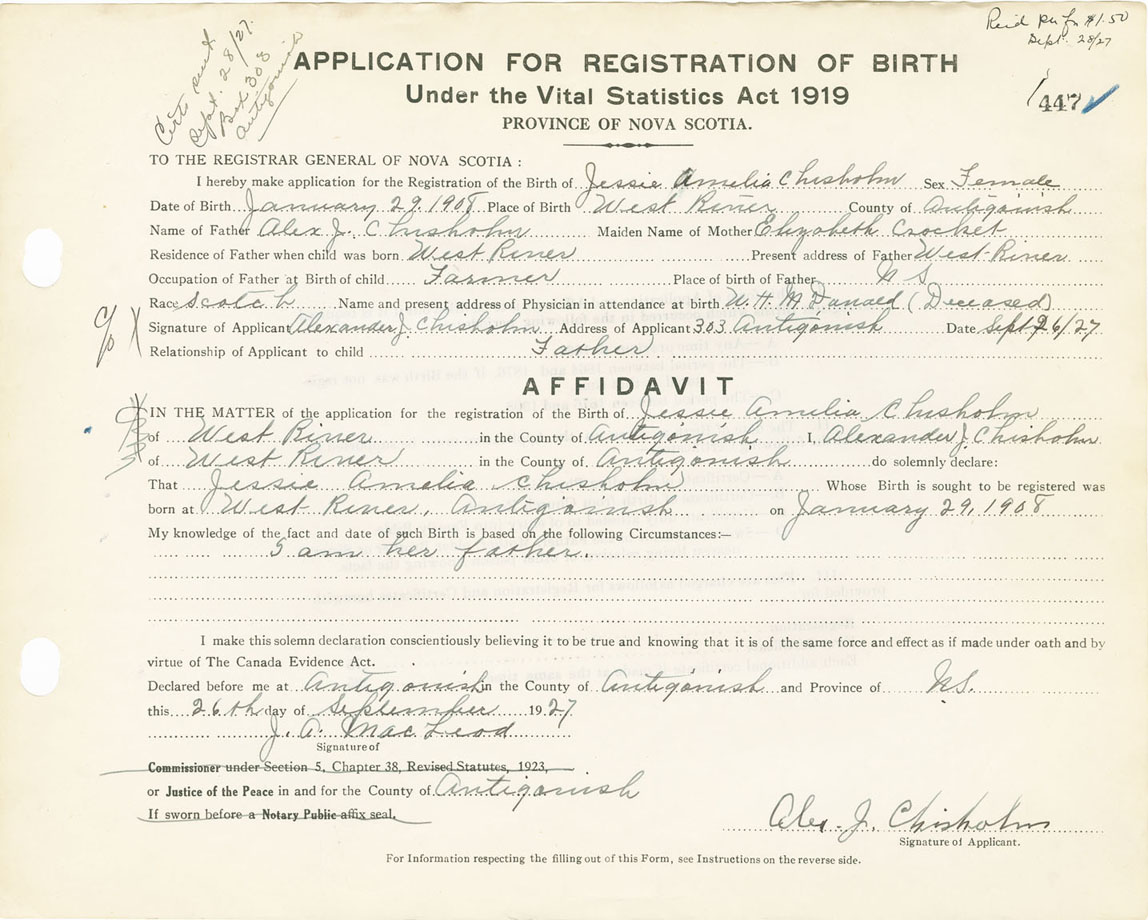 Certs sent
Sept. 28/27.
Box 303
Antigonish
Reid
$1.50
Sept. 28/27
APPLICATION FOR REGISTRATION OF BIRTH
Under the Vital Statistics Act 1919
PROVINCE OF NOVA SCOTIA.
447
TO THE REGISTRAR GENERAL OF NOVA SCOTIA :
I hereby make application for the Registration of the Birth of Jessie Amelia Chisholm Sex Female
Date of Birth January 29. 1908 Place of Birth West River County of Antigonish
Name of Father Alex J. Chisholm Maiden Name of Mother Elizabeth Crocket
Residence of Father when child was born West River Present address of Father West River
Occupation of Father at Birth of child Farmer Place of birth of Father N S
Race Scotch Name and present address of Physician in attendance at birth W. H. McDonald (Deceased)
Signature of Applicant Alexander J. Chisholm Address of Applicant 303 Antigonish Date Sept 26/27
Relationship of Applicant to child Father
AFFIDAVIT
IN THE MATTER of the application for the registration of the Birth of Jessie Amelia Chisholm
of West River in the County of Antigonish I, Alexander J. Chisholm
of West River in the County of Antigonish do solemnly declare:
That Jessie Amelia Chisholm Whose Birth is sought to be registered was
born at West River, Antigonish on January 29, 1908
My knowledge of the fact and date of such Birth is based on the following Circumstances:—
I am her father.
I make this solemn declaration conscientiously believing it to be true and knowing that it is of the same force and effect as if made under oath and by
virtue of The Canada Evidence Act.
Declared before me at Antigonish in the County of Antigonish and Province of N.S.
this 26th day of September 1927
J. A. MacLeod
Signature of
Commissioner under Section 5, Chapter 38, Revised Statutes, 1923,
or Justice of the Peace in and for the County of Antigonish
If sworn before a Notary Public affix seal.
Alex. J. Chisholm
Signature of Applicant.
For Information respecting the filling out of this Form, see Instructions on the reverse side.